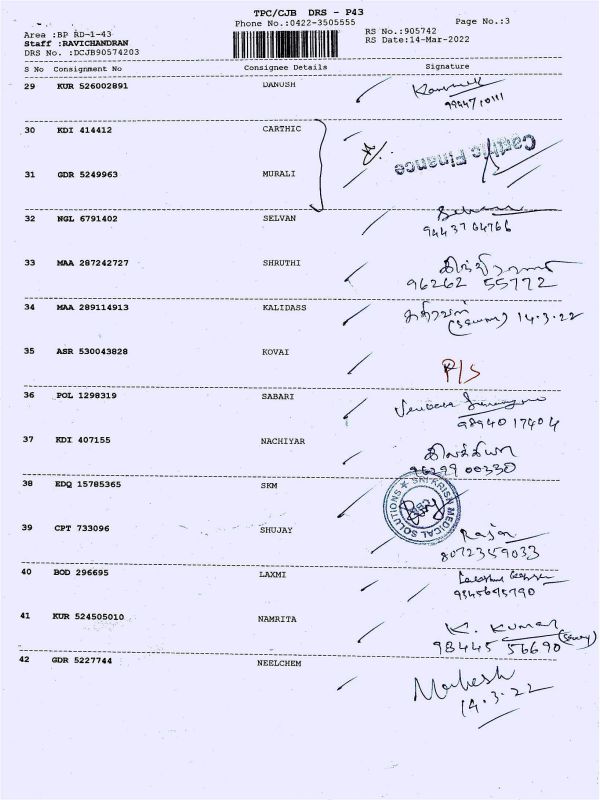 TPC/CJB DRS - P43
Phone No.:0422-3505555
Page No.:3
Area :BP RD-1-43
RS No.:905742
Staff :RAVICHANDRAN
RS Date:14-Mar-2022
DRS No. :DCJB90574203
S No Consignment No Consignee Details Signature
29 KUR 526002891 DANUSH
30 KDI 414412 CARTHIC
Carthic Finance
31 GDR 5249963 MURALI
32 NGL 6791402 SELVAN Selvan
33 MAA 287242727 SHRUTHI
96262 55772
34 MAA 289114913 KALIDASS
14.3.22
35 ASR 530043828 KOVAI
P/S
36 POL 1298319 SABARI
98940 17404
37 KDI 407155 NACHIYAR
96299 00330
38 EDQ 15785365 SKM
SRI KRISH MEDICAL SOLUTIONS
39 CPT 733096 SHUJAY Rajan
8072359033
40 BOD 296695 LAXMI
9345695790
41 KUR 524505010 NAMRITA K. Kumar
98445 56690
42 GDR 5227744 NEELCHEM Mahesh
14.3.22